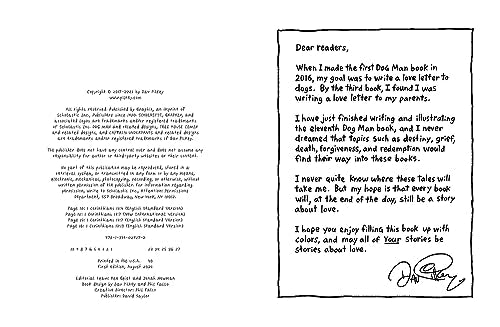 Copyright ©
www.pilkey.com
All rights reserved. Published by Graphix, an imprint of
Scholastic Inc., Publishers since 1920. SCHOLASTIC, GRAPHIX, and
associated logos are trademarks and/or registered trademarks
of Scholastic Inc. DOG MAN and related designs, TREE HOUSE COMIX
and related designs, and CAPTAIN UNDERPANTS and related designs
are trademarks and/or registered trademarks of Dav Pilkey.
The publisher does not have any control over and does not assume any
responsibility for author or third-party websites or their content.
No part of this publication may be reproduced, stored in a
retrieval system, or transmitted in any form or by any means,
electronic, mechanical, photocopying, recording, or otherwise, without
written permission of the publisher. For information regarding
permission, write to Scholastic Inc., Attention: Permissions
Department, 557 Broadway, New York, NY 10012.
(English Standard Version)
(English Standard Version)
(English Standard Version)
Printed in the U.S.A.
First edition, August
Editorial team: Ken Geist and Jonah Newman
Book design by Dav Pilkey and Phil Falco
Creative Director: Phil Falco
Publisher: David Saylor
Dear readers,
When I made the first Dog Man book in
2016, my goal was to write a love letter to
dogs. By the third book, I found I was
writing a love letter to my parents.
I have just finished writing and illustrating
the eleventh Dog Man book, and I never
dreamed that topics such as destiny, grief,
death, forgiveness, and redemption would
find their way into these books.
I never quite know where these Tales will
take me. But my hope is that every book
will, at the end of the day, still be a story
about love.
I hope you enjoy filling this book up with
colors, and may all of Your stories be
stories about love.
Dav Pilkey